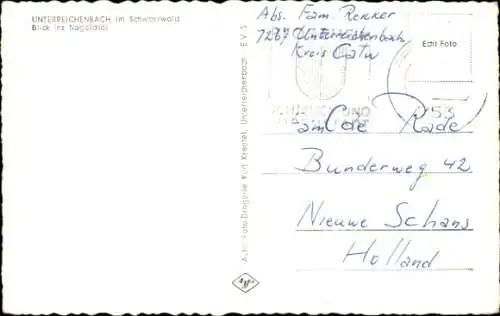 UNTERREICHENBACH im Schwarzwald
Blick ins Nagoldtal
Abs. Fam. Renner
7267 Unterreichenbach
Kreis Calw
Echt Foto
53
UND
am Cde Rade
Bunderweg 42
Nieuwe Schans
Holland
Foto-Drogerie Kurt Kreutel, Unterreichenbach E.V.S
Agfa